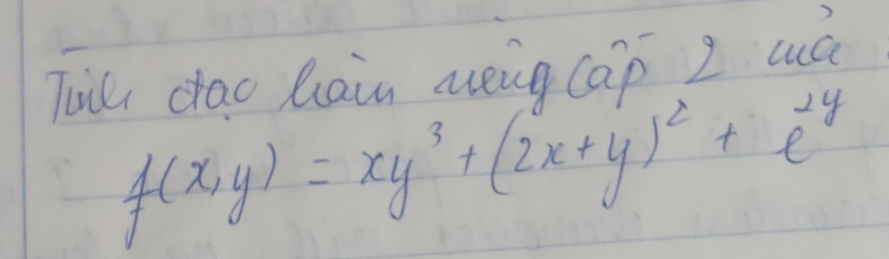 Tính đạo hàm riêng cấp 2 của
f(x,y) = xy³ + (2x+y)² + e²ʸ